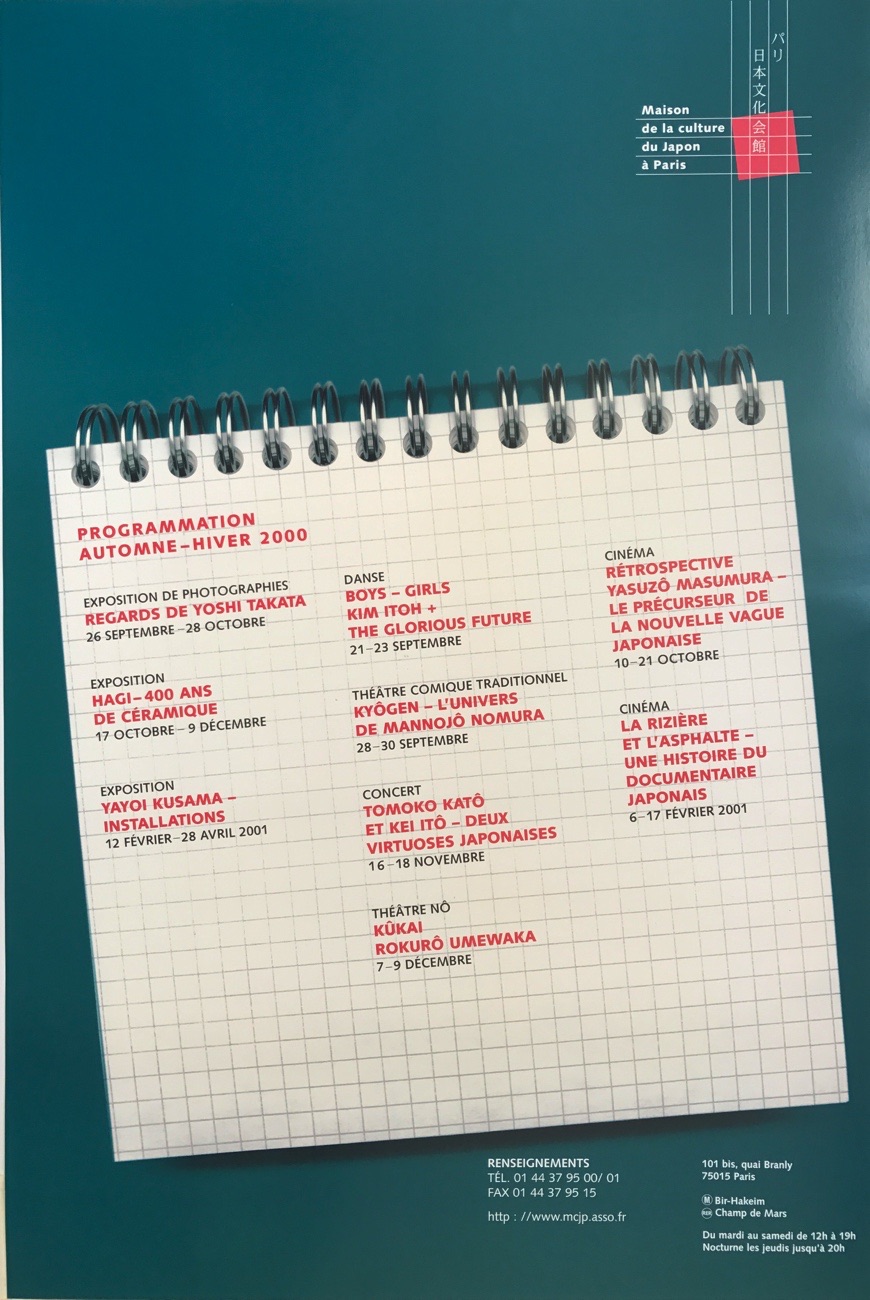 パリ
日本文化会館
Maison
de la culture
du Japon
à Paris
PROGRAMMATION
AUTOMNE–HIVER 2000
EXPOSITION DE PHOTOGRAPHIES
REGARDS DE YOSHI TAKATA
26 SEPTEMBRE–28 OCTOBRE
EXPOSITION
HAGI–400 ANS
DE CÉRAMIQUE
17 OCTOBRE–9 DÉCEMBRE
EXPOSITION
YAYOI KUSAMA –
INSTALLATIONS
12 FÉVRIER–28 AVRIL 2001
DANSE
BOYS – GIRLS
KIM ITOH +
THE GLORIOUS FUTURE
21–23 SEPTEMBRE
THÉÂTRE COMIQUE TRADITIONNEL
KYÔGEN – L'UNIVERS
DE MANNOJÔ NOMURA
28–30 SEPTEMBRE
CONCERT
TOMOKO KATÔ
ET KEI ITÔ – DEUX
VIRTUOSES JAPONAISES
16–18 NOVEMBRE
THÉÂTRE NÔ
KÛKAI
ROKURÔ UMEWAKA
7–9 DÉCEMBRE
CINÉMA
RÉTROSPECTIVE
YASUZÔ MASUMURA –
LE PRÉCURSEUR DE
LA NOUVELLE VAGUE
JAPONAISE
10–21 OCTOBRE
CINÉMA
LA RIZIÈRE
ET L'ASPHALTE –
UNE HISTOIRE DU
DOCUMENTAIRE
JAPONAIS
6–17 FÉVRIER 2001
RENSEIGNEMENTS
TÉL. 01 44 37 95 00/ 01
FAX 01 44 37 95 15
http : //www.mcjp.asso.fr
101 bis, quai Branly
75015 Paris
M Bir-Hakeim
RER Champ de Mars
Du mardi au samedi de 12h à 19h
Nocturne les jeudis jusqu'à 20h